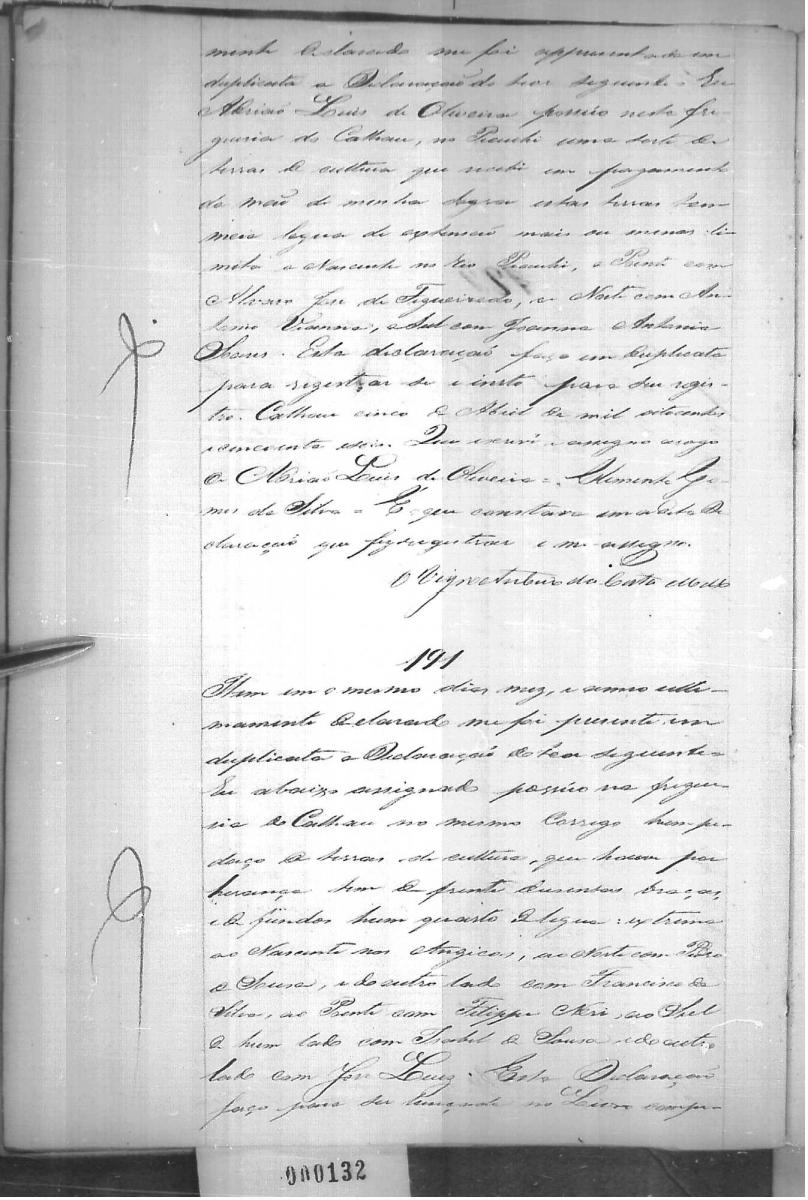 mente declarado me foi appresentada em
duplicata a Declaração do teor seguinte = Eu
Luis de Oliveira possúo nesta fre-
guesia do Calhau, no Piauhi uma sorte de
terras de cultura que recebi em pagamento
da mão de minha sogra estas terras tem
meia legua de extensaõ mais ou menos: li-
mita o Nascente no Rio Piauhi, o Poente com
Alvaro Jose de Figueiredo, o Norte com An-
tonio Vianna, o Sul com Joanna Antonia
Soares. Esta declaração faço em duplicata
para registrar se e insto para seu regis-
tro. Calhau cinco de Abril de mil oitocentos
e cincoenta e seis. Que escrevi e assigno a rogo
de Luis de Oliveira = Clemente Go-
mes da Silva = E o que constava em a dita De-
claração que fiz registrar e me assigno.
O Vigro da Costa
191
Item em o mesmo dia, mez, e anno ulti-
mamente declarado me foi presente em
duplicata a Declaração do teor seguinte =
Eu abaixo assignado possúo na fregue-
sia do Calhau no mesmo Corrego hum pe-
daço de terras de cultura, que houve por
herança tem de frente dusentas braças,
e de fundos hum quarto de legua: extrema
ao Nascente nos Angicos, ao Norte com Pedro
de Sousa, e do outro lado com Francisco da
Silva, ao Poente com Filippe Neri, ao Sul
de hum lado com Isabel de Sousa e do outro
lado com Jose Luiz. Esta Declaração
faço para ser lançada no Livro compe-
000132